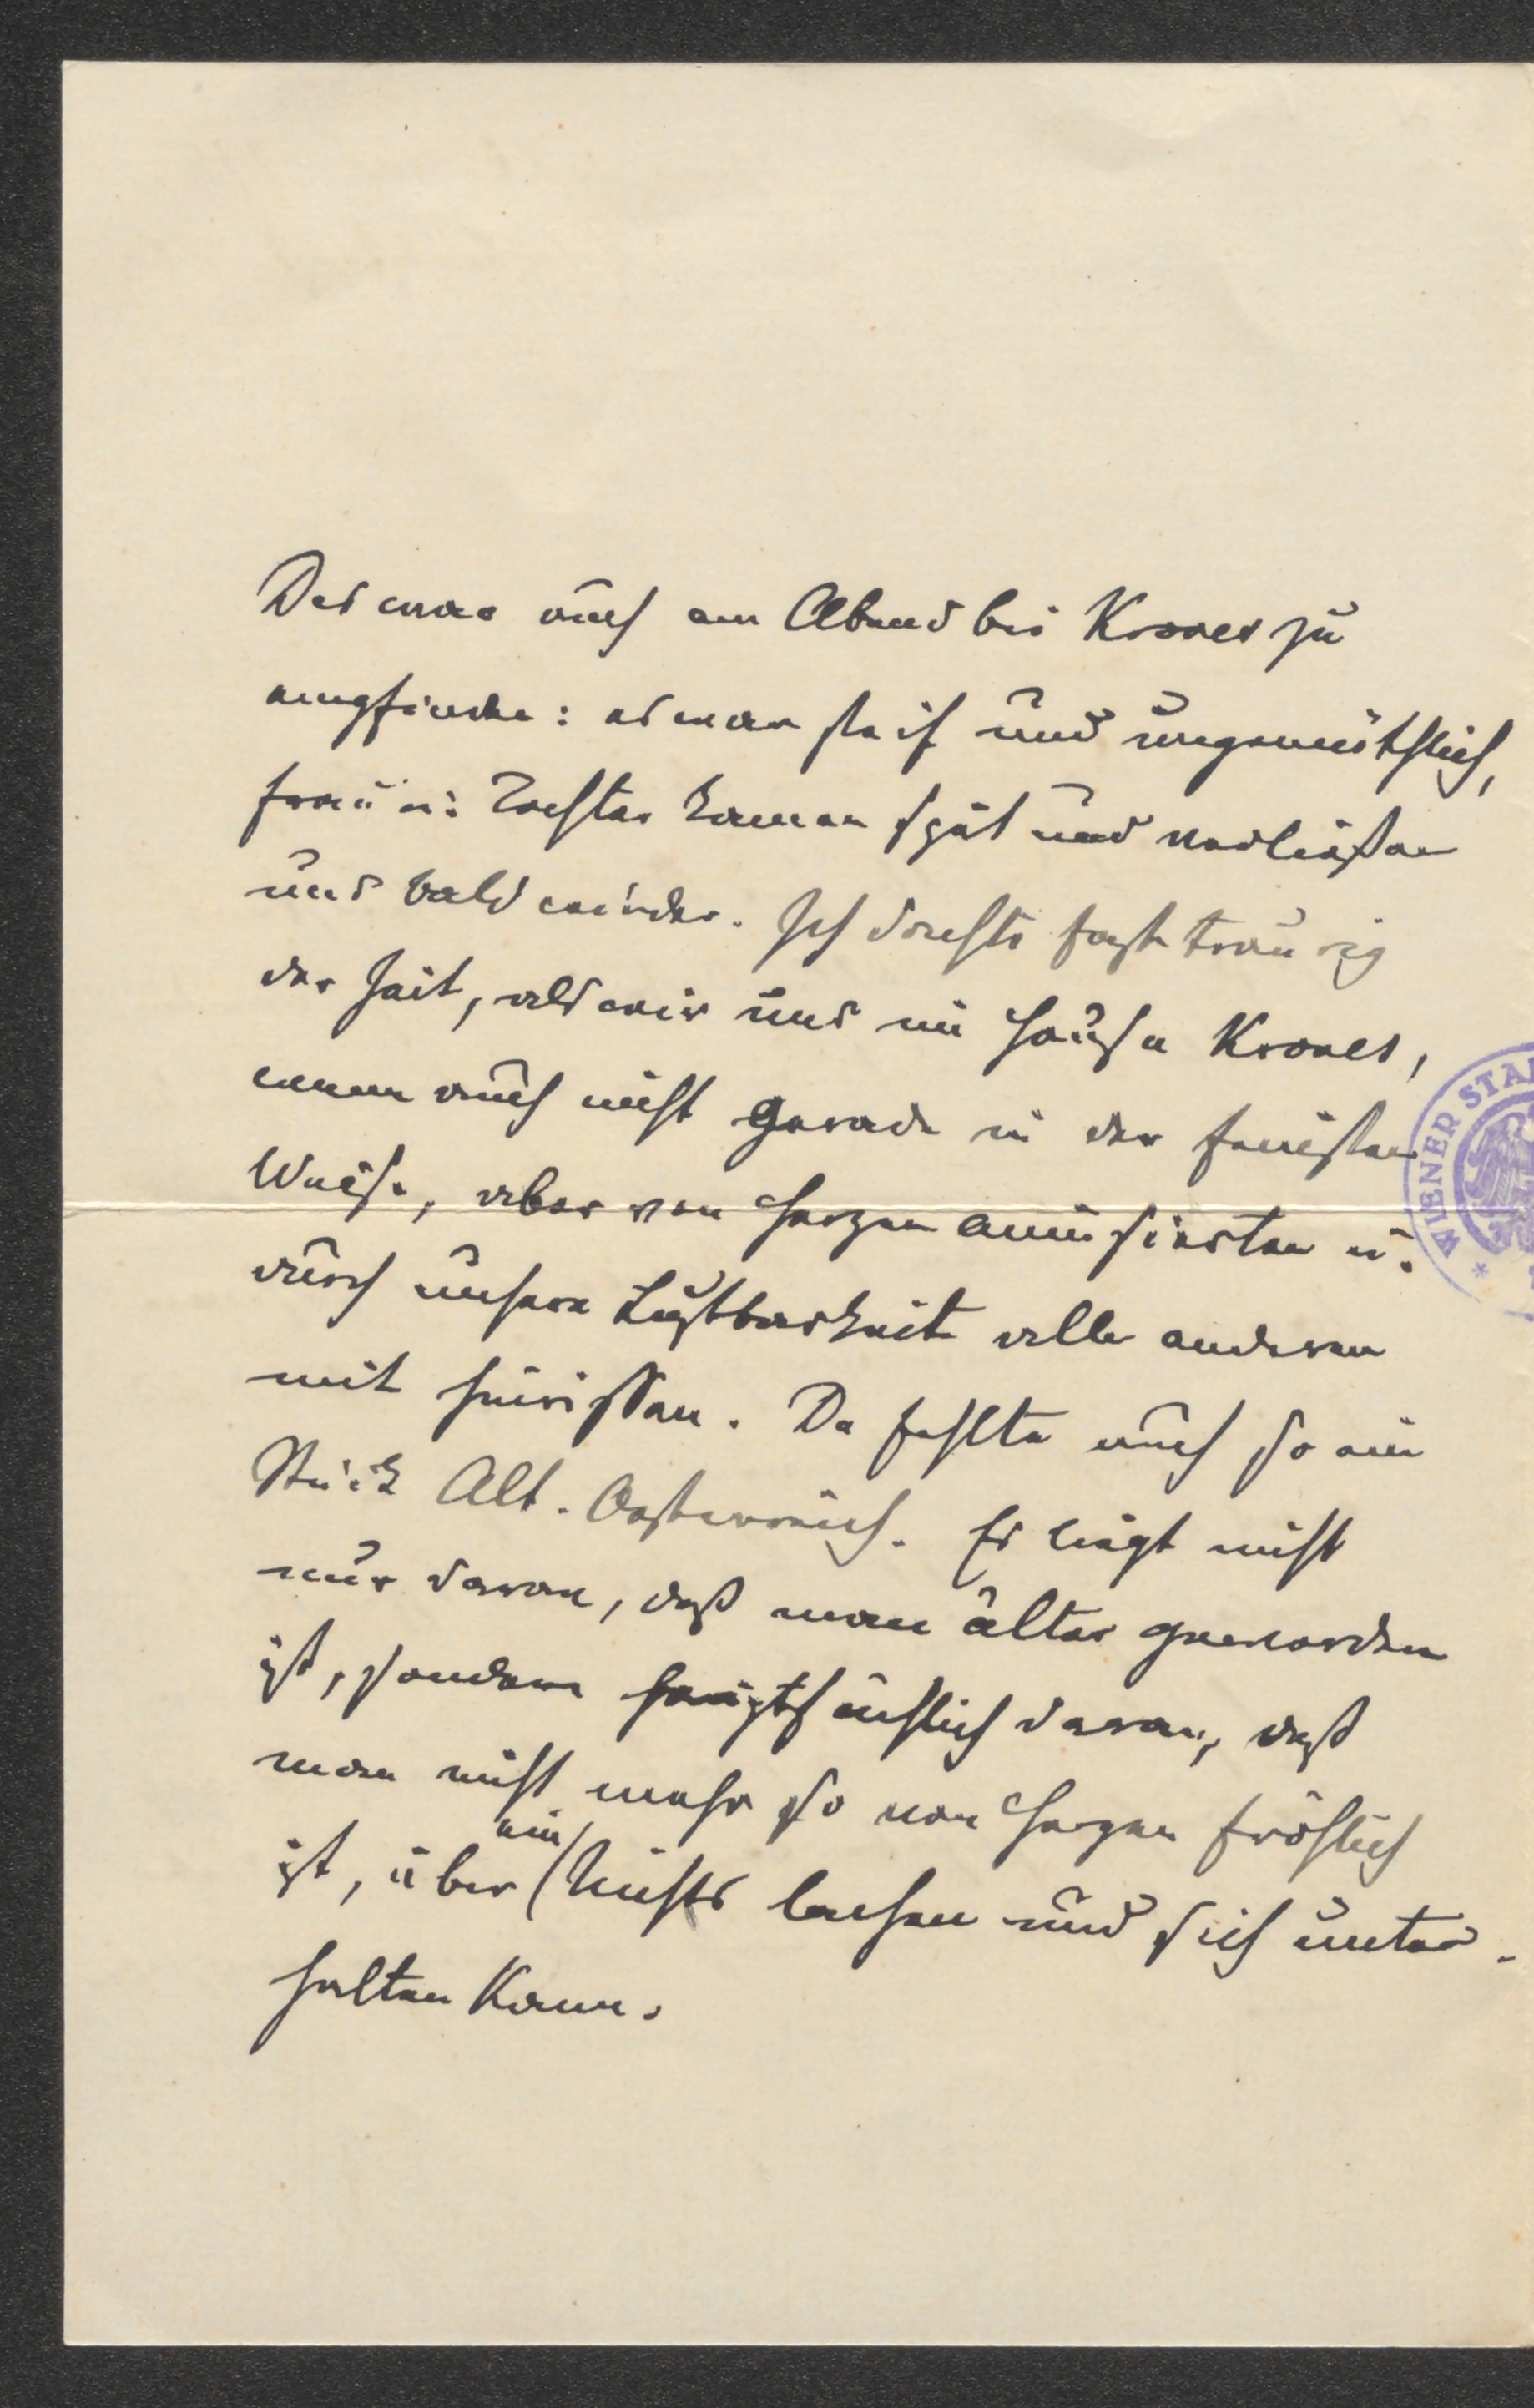 Das war auch am Abend bei Krones zu
empfinden: es war steif und ungemüthlich,
Frau u: Tochter kamen spät und verließen
uns bald wieder. Ich dachte fast traurig
der Zeit, als wir uns im Hause Krones,
wenn auch nicht gerade in der feinsten
Weise, aber von Herzen amüsierten u.
durch unsere Lustbarkeit alle anderen
mit hinrissen. Da fehlte auch so ein
Stück Alt-Oesterreich. Es liegt nicht
nur daran, daß man älter geworden
ist, sondern hauptsächlich daran, daß
man nicht mehr so von Herzen fröhlich
ist, über ein Nichts lachen und sich unter-
halten kann.
WIENER STA